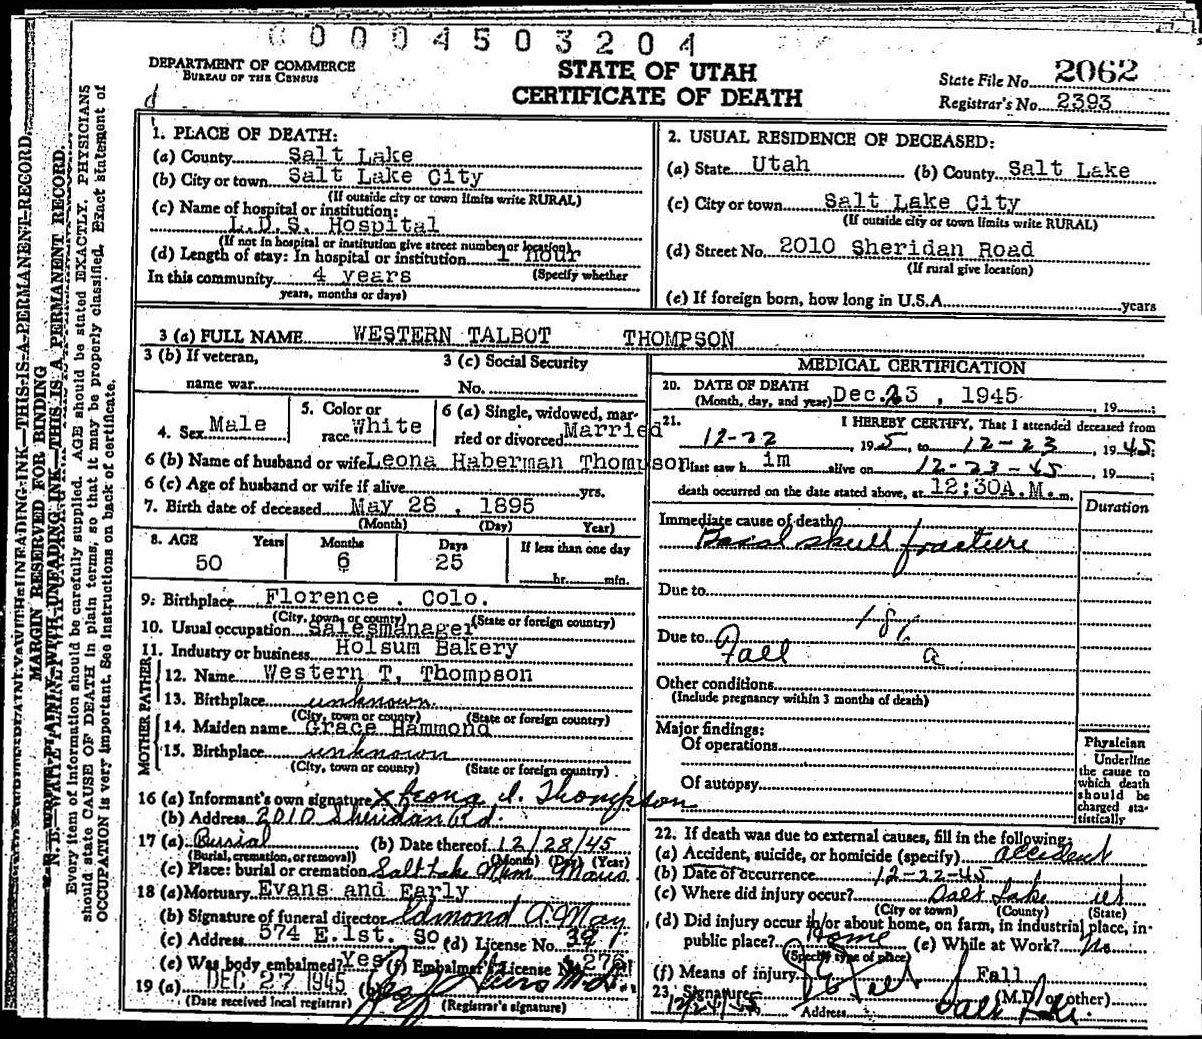 0004503204
DEPARTMENT OF COMMERCE
BUREAU OF THE CENSUS
STATE OF UTAH
CERTIFICATE OF DEATH
State File No. 2062
Registrar's No. 2393
MARGIN RESERVED FOR BINDING
N. B.—WRITE PLAINLY WITH UNFADING INK—THIS IS A PERMANENT RECORD.
Every item of information should be carefully supplied. AGE should be stated EXACTLY. PHYSICIANS
should state CAUSE OF DEATH in plain terms, so that it may be properly classified. Exact statement of
OCCUPATION is very important. See instructions on back of certificate.
1. PLACE OF DEATH:
(a) County Salt Lake
(b) City or town Salt Lake City
(If outside city or town limits write RURAL)
(c) Name of hospital or institution:
L.D.S. Hospital
(If not in hospital or institution give street number or location)
(d) Length of stay: In hospital or institution 1 hour
(Specify whether
In this community 4 years
years, months or days)
2. USUAL RESIDENCE OF DECEASED:
(a) State Utah (b) County Salt Lake
(c) City or town Salt Lake City
(If outside city or town limits write RURAL)
(d) Street No. 2010 Sheridan Road
(If rural give location)
(e) If foreign born, how long in U.S.A. years
3 (a) FULL NAME WESTERN TALBOT THOMPSON
3 (b) If veteran,
name war
3 (c) Social Security
No.
4. Sex Male
5. Color or
race White
6 (a) Single, widowed, mar-
ried or divorced Married
6 (b) Name of husband or wife Leona Haberman Thompson
6 (c) Age of husband or wife if alive yrs.
7. Birth date of deceased May 28, 1895
(Month) (Day) Year)
8. AGE Years Months Days If less than one day
50 6 25 hr. min.
9. Birthplace Florence, Colo.
(City, town or county) (State or foreign country)
10. Usual occupation Salesmanager
11. Industry or business Holsum Bakery
FATHER
12. Name Western T. Thompson
13. Birthplace unknown
(City, town or county) (State or foreign country)
MOTHER
14. Maiden name Grace Hammond
15. Birthplace unknown
(City, town or county) (State or foreign country)
16 (a) Informant's own signature x Leona I. Thompson
(b) Address 2010 Sheridan Rd.
17 (a) Burial (b) Date thereof 12/28/45
(Burial, cremation, or removal) (Month) (Day) (Year)
(c) Place: burial or cremation Salt Lake Mem
18 (a) Mortuary Evans and Early
(b) Signature of funeral director Edmond A. May
(c) Address 574 E.1st. So (d) License No. 39
(e) Was body embalmed? Yes (f) Embalmer's License No. 276
19 (a) DEC 27 1945 (b)
(Date received local registrar) (Registrar's signature)
MEDICAL CERTIFICATION
20. DATE OF DEATH
(Month, day, and year) Dec. 23, 1945 , 19
21. I HEREBY CERTIFY, That I attended deceased from
12-22 19 5, to 12-23, 1945;
I last saw h im alive on 12-23-45, 19
death occurred on the date stated above, at 12:30A.M. m.
Duration
Immediate cause of death
Basal skull fracture
Due to
186
Due to
Fall a
Other conditions
(Include pregnancy within 3 months of death)
Major findings:
Of operations
Of autopsy
Physician
Underline
the cause to
which death
should be
charged sta-
tistically
22. If death was due to external causes, fill in the following:
(a) Accident, suicide, or homicide (specify) accident
(b) Date of occurrence 12-22-45
(c) Where did injury occur? Salt Lake ut
(City or town) (County) (State)
(d) Did injury occur in/or about home, on farm, in industrial place, in
public place? Home (e) While at Work? No
(Specify type of place)
(f) Means of injury Fall
23. Signature (M.D. or other)
12/24/45 Address Salt Lake